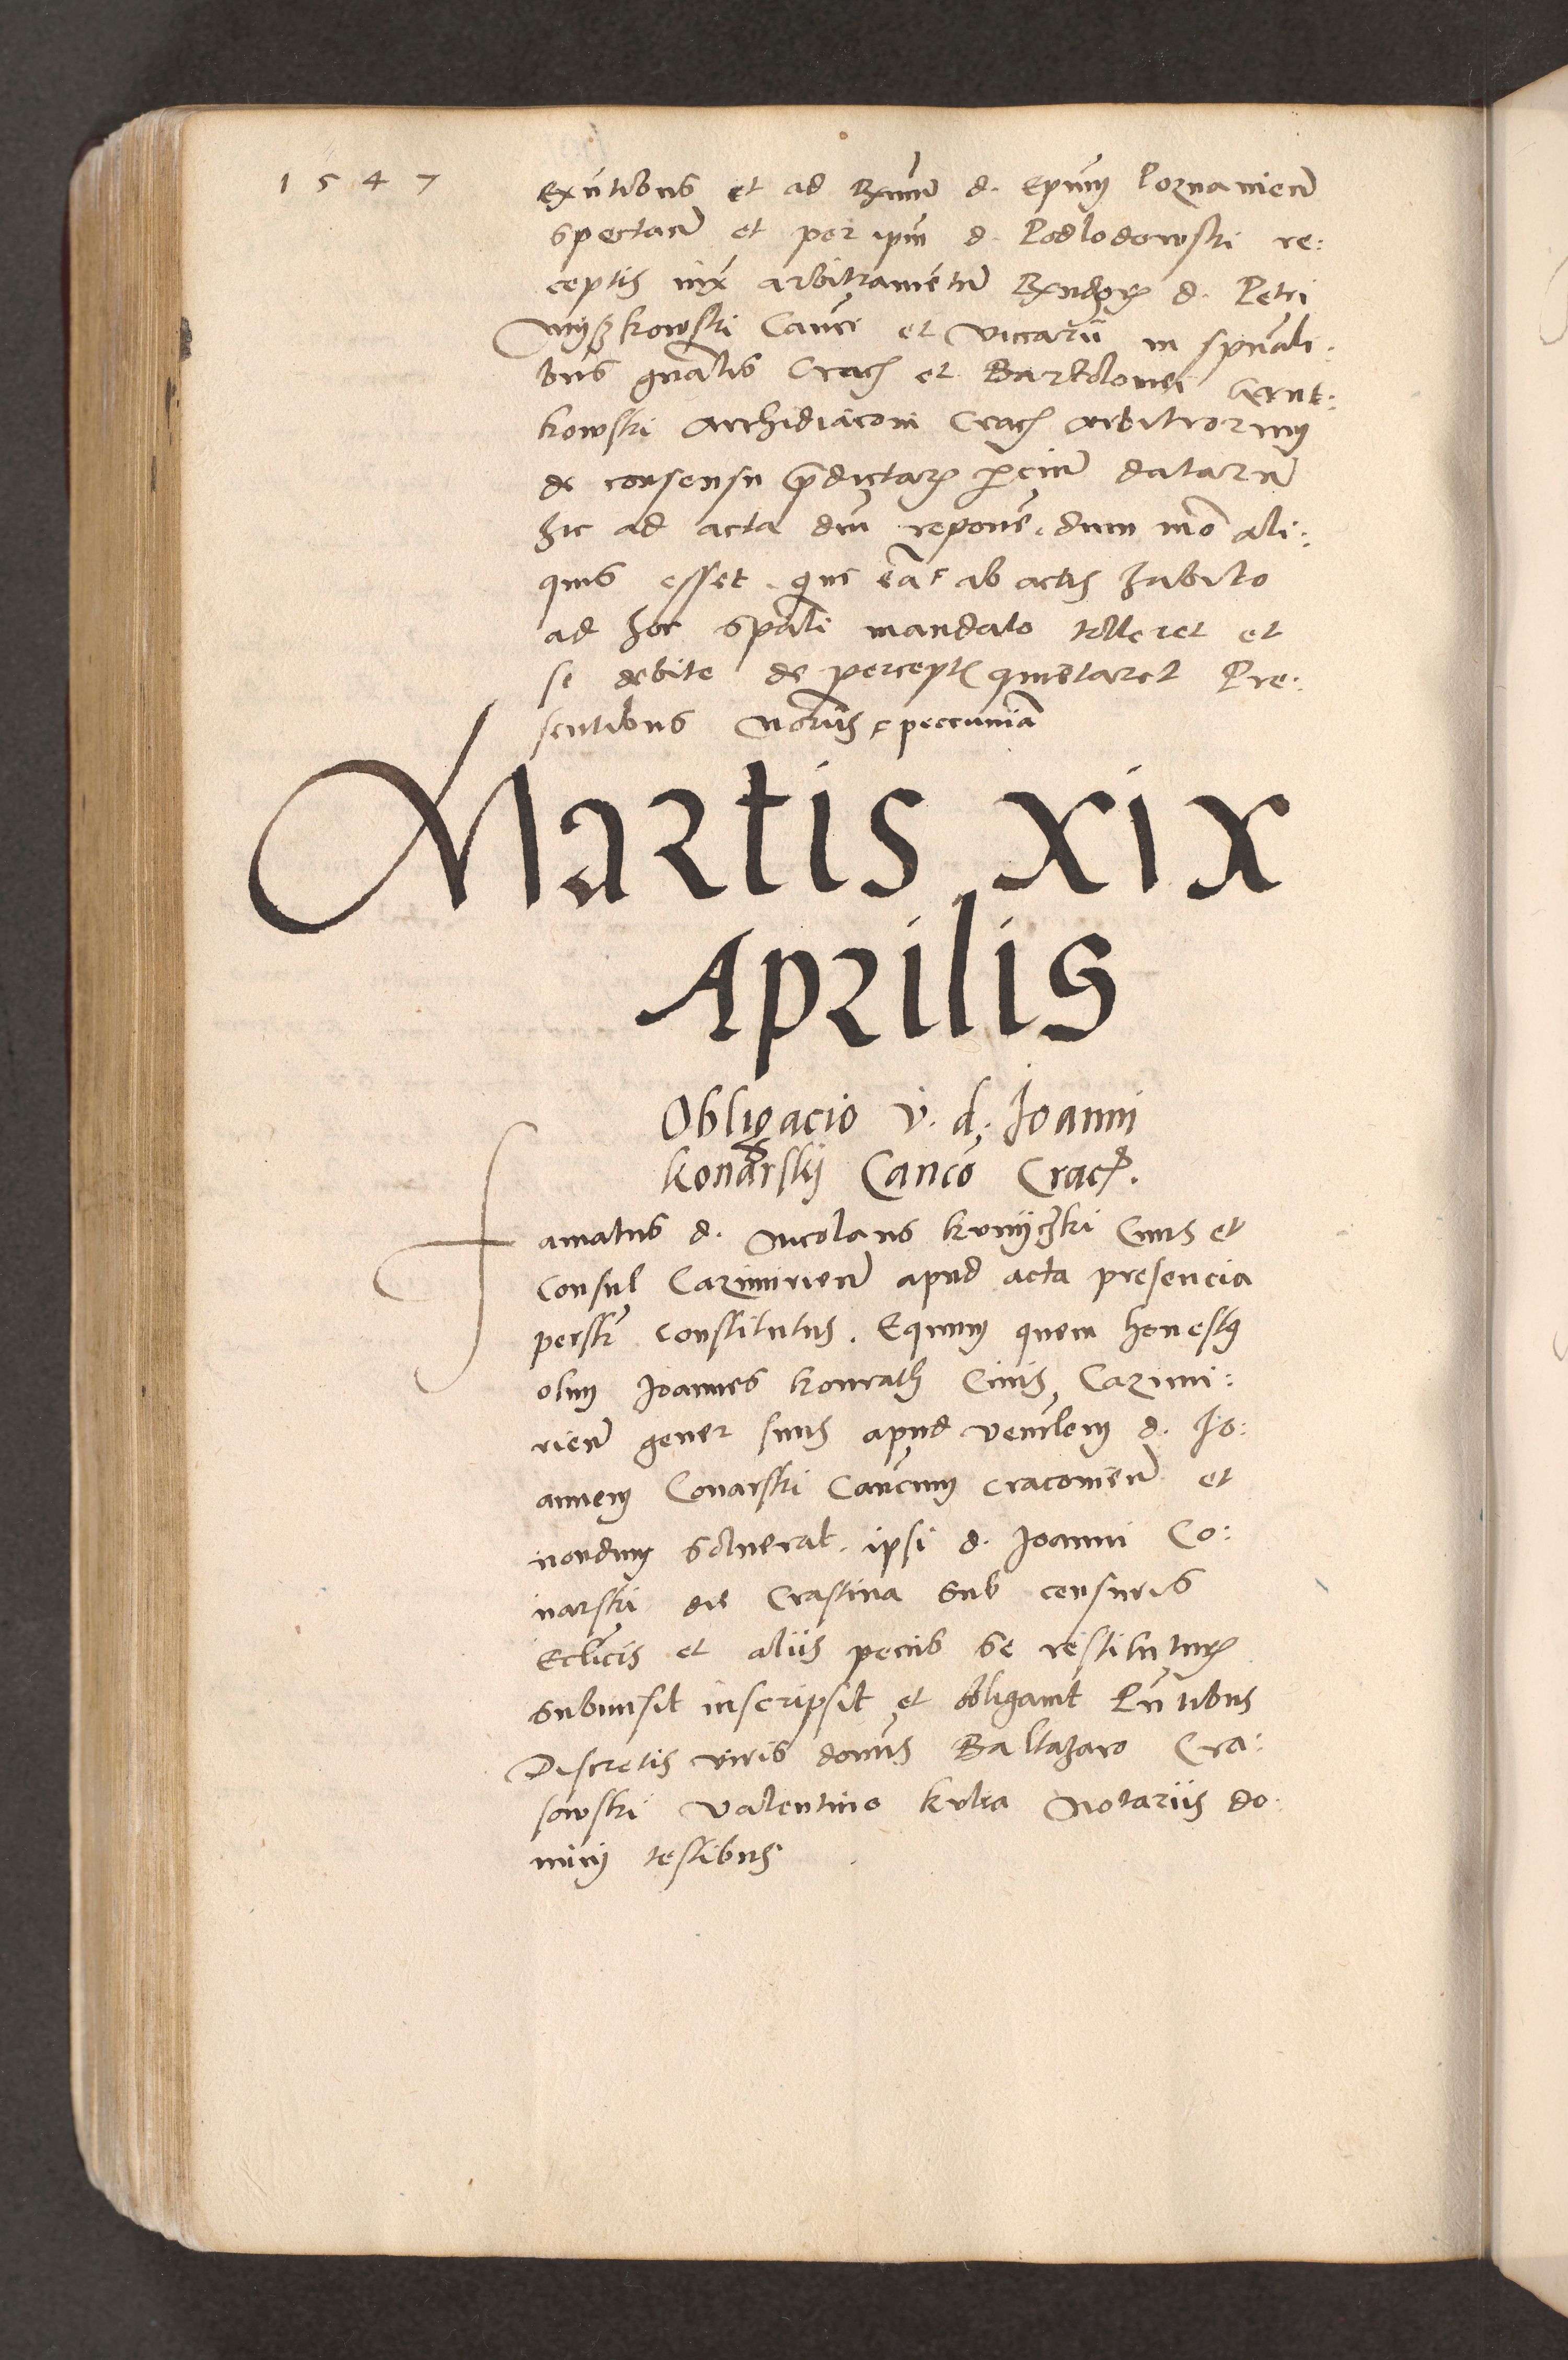 1547
exn̄tibus et ad Rx̄mū d. Ep̄um Poznanieñ
spectań et per ip̄m d. Podlodowski re:
ceptis iux̄ arbitramentū Rx̄ndorꝝ d. Petri
Myßkowski Can̄ci et viccarii in sp̄ūali:
bus gn̄alis Crac̄ et Bartolomei Gant:
kowski Archidiaconi Crac̄ arbitrorum
de consensu p̄dictarꝝ p̄ciū datarū
hic ad acta dūi reponē. dum m̄o ali:
quis esset qui eās ab actis habito
ad hoc sp̄ali mandato tolleret et
se debite de perceptis quietaret Pre:
sentibus Notariis peccuniā
Martis xix
Aprilis
Obligacio v. d. Joanni
Konarskij Can̄co Crac̄.
Famatus d. Nicolaus Krnyczki Ciuis et
Consul Cazimirień apud acta presencia
perslr̄ constitutus. Equum quem honestus
olim Joannes Konrath Ciuis Cazimi:
rień gener suus apud ven̄lem d. Jo:
annem Conarski Can̄cum Cracouień et
nondum soluerat. ipsi d. Joanni Co:
narski die Crastina sub censuris
Ecl̄icis et aliis penis se restituturꝝ
submisit inscripsit et obligauit Pn̄tibus
Discretis viris domīs Baltazaro Cra:
sowski Valentino Kulia Notariis do:
minij testibus